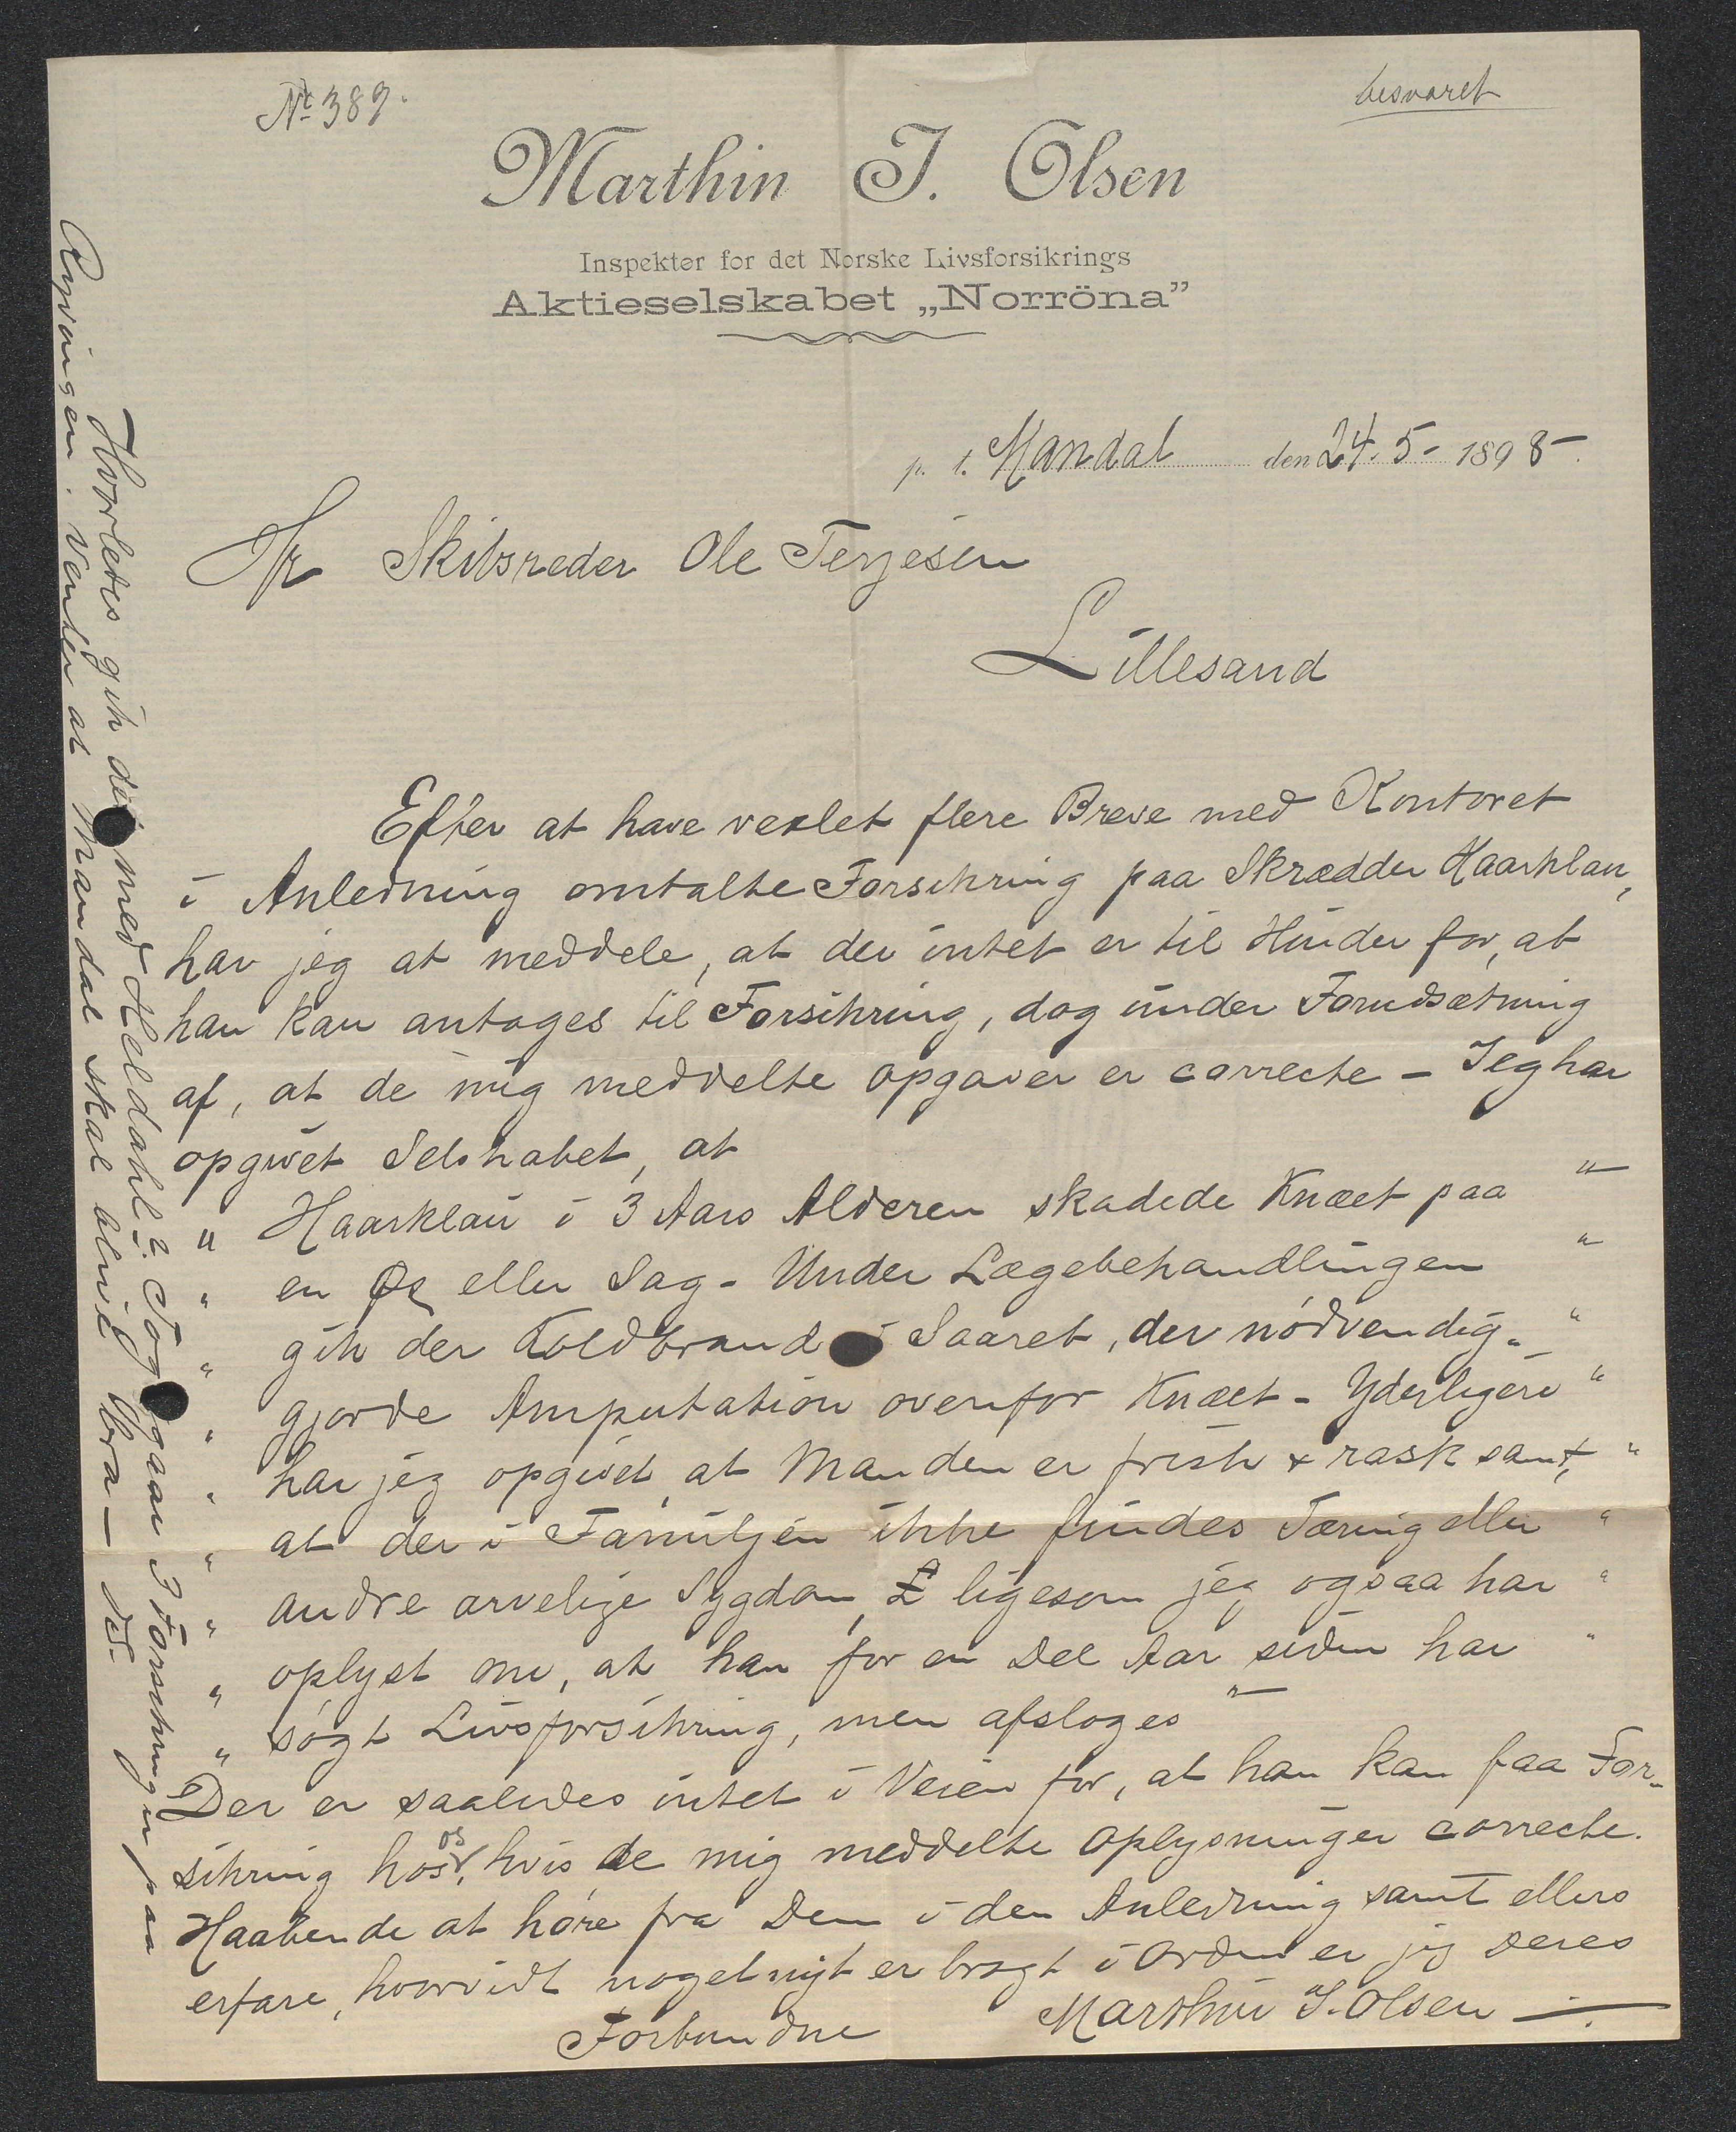 No 389.
besvaret
Marthin J. Olsen
Inspektør for det Norske Livsforsikrings
Aktieselskabet „Norröna”
p. t. Mandal den 24. 5- 1898-
Hr Skibsreder Ole Terjesen
Lillesand
Efter at have vexlet flere Breve med Kontoret
i Anledning omtalte Forsikring paa Skrædder Haarklau,
har jeg at meddele, at der intet er til Hinder for, at
han kan antages til Forsikring, dog under Forudsætning
af, at de mig meddelte opgaver er correcte - Jeg har
opgivet Selskabet, at
" Haarklau i 3 Aars Alderen skadede Knæet paa "
" en Øx eller Sag - Under Lægebehandlingen "
" gik der Koldbrand i Saaret, der nödvendig- "
" gjorde Amputation ovenfor Knæet - Yderligere "
" har jeg opgivet, at Manden er frisk & rask samt, "
" at der i Familjen ikke findes Tæring eller "
" andre arvelige Sygdom, ligesom jeg ogsaa har "
" oplyst om, at han for en Del Aar siden har "
" sögt Livsforsikring, men afsloges "
Der er saaledes intet i Veien for, at han kan faa For-
sikring hos os, hvis de mig meddelte Oplysninger correcte.
Haabende at höre fra Dem i den Anledning samt ellers
erfare, hvorvidt noget nyt er bragt i Orden er jeg Deres
Forbundne Marthin J. Olsen
Hvorledes gik det med Heldahl? Tog igaar 3 Forsikringer paa
. Venter at Mandal skal blive bra - Ds.